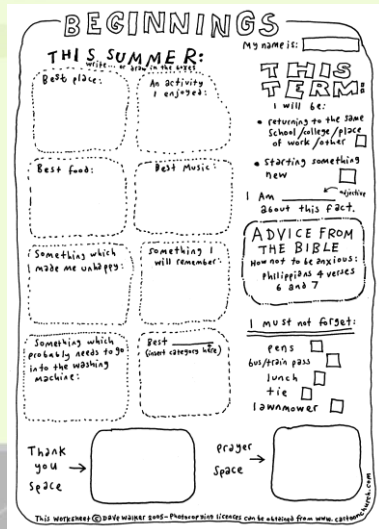 BEGINNINGS
My name is:
THIS SUMMER:
write... or draw in the boxes
Best place:
An activity
I enjoyed:
Best food:
Best Music:
Something which
made me unhappy:
Something I
will remember:
Something which
probably needs to go
into the washing
machine:
Best
(insert category here)
THIS
TERM:
I will be:
• returning to the same
School/college/place
of work/other
• Starting something
new
I Am
adjective
about this fact.
ADVICE FROM
THE BIBLE
How not to be anxious:
Philippians 4 verses
6 and 7
I must not forget:
pens
bus/train pass
lunch
tie
lawnmower
Thank
you
space
prayer
space
This Worksheet © Dave Walker 2005 - Photocopying licences can be obtained from www.cartoonchurch.com